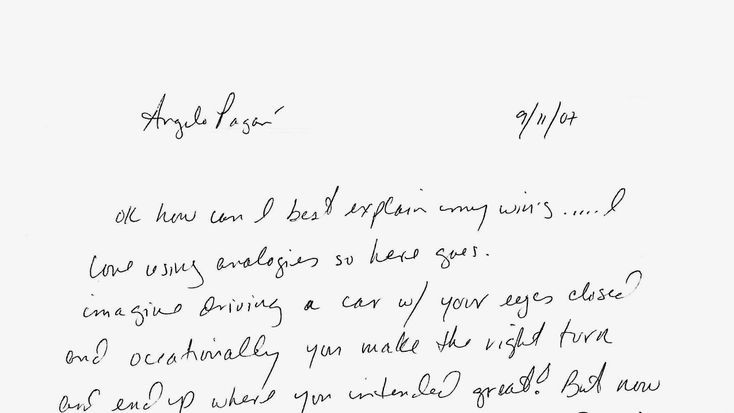 Angelo Pagán 9/11/07
OK how can I best explain my win's.....I
love using analogies so here goes.
imagine driving a car w/ your eyes closed
and occationally you make the right turn
and end up where you intended great! But now